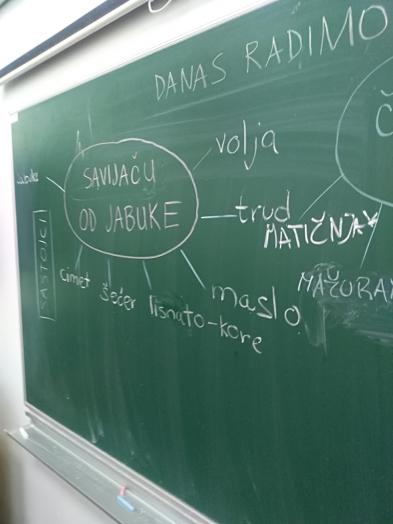 DANAS RADIMO
SAVIJAČU
OD JABUKE
volja
trud
maslo
lisnato-kore
šećer
cimet
jabuke
SASTOJCI
Č
MATIČNJAK
MAŽURAN